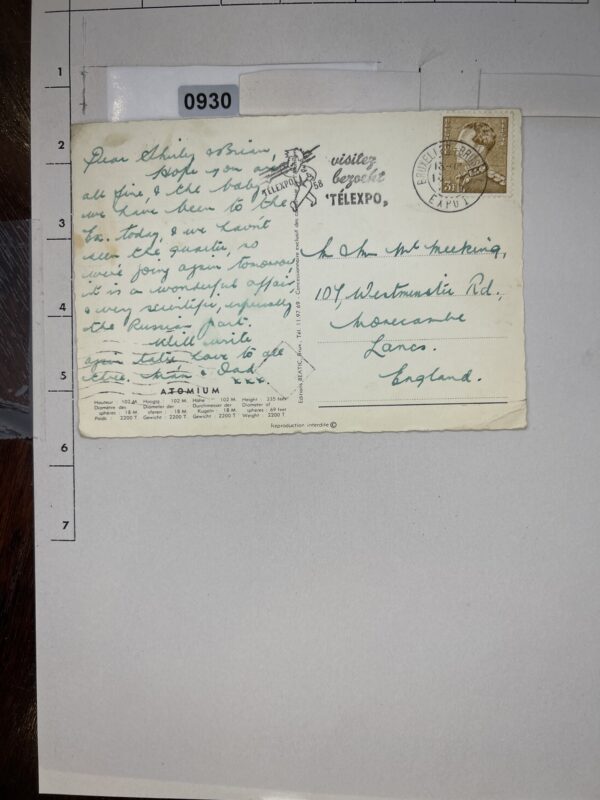 1
2
3
4
5
6
7
0930
Dear Shirley & Brian,
Hope you are
all fine, & the baby,
we have been to the
Ex. today, & we havn't
seen the quarter, so
we're going again tomorrow,
it is a wonderful affair
& very scientific, especially
the Russian part.
Will write
again later love to all
three. Mam & Dad.
xxx.
ATOMIUM
Hauteur : 102 M. Hoogte 102 M. Höhe : 102 M. Height : 335 feet
Diamètre des Diameter der Durchmesser der Diameter of
sphères : 18 M. sferen : 18 M. Kugeln : 18 M. spheres : 69 feet
Poids 2200 T. Gewicht : 2200 T. Gewicht : 2200 T. Weight : 2200 T.
Reproduction interdite ©
TÉLEXPO 58
visitez
bezoekt
"TÉLEXPO"
EXPO 1
M Mrs Meeking,
109 Westminster Rd.,
Morecambe
Lancs.
England.